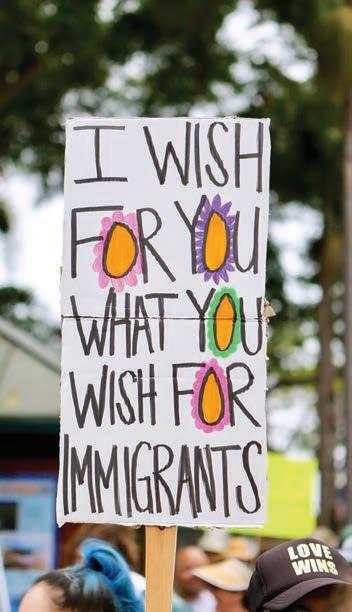 I WISH
FOR YOU
WHAT YOU
WISH FOR
IMMIGRANTS
LOVE
WINS